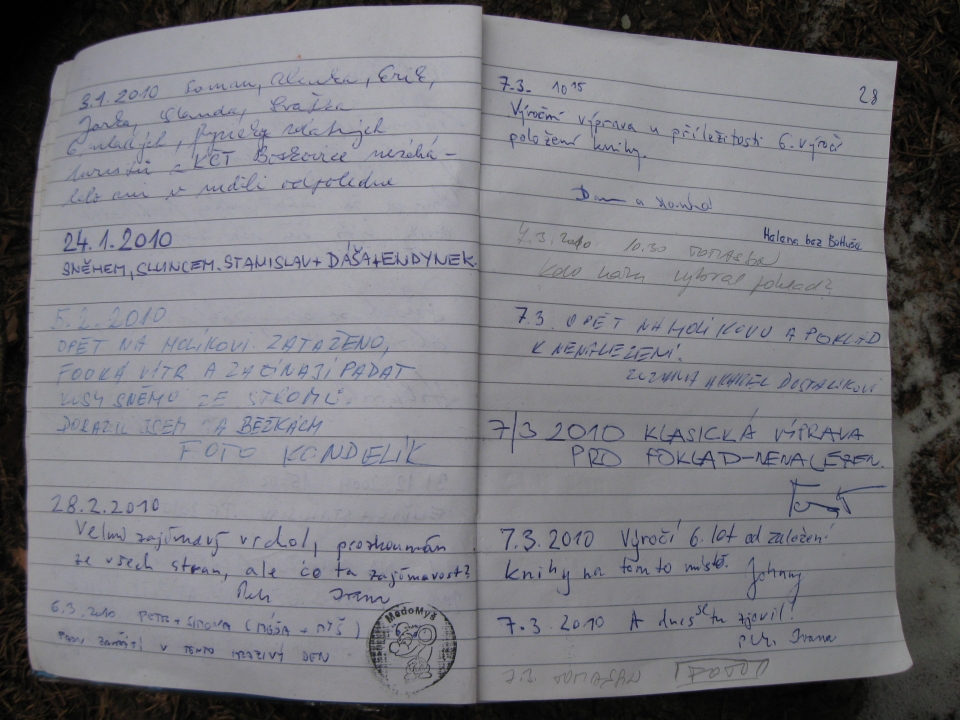 3.1.2010 Roman, Alenka, Erik,
Jarka, Vlaďka
6 mladých,
turistů z KČT Boskovice
ani v neděli odpoledne
24.1.2010
SNĚHEM, SLUNCEM. STANISLAV + DÁŠA + ENDYNEK.
5.2.2010
OPĚT NA HOLÍKOVI ZATAŽENO,
FOUKÁ VÍTR A ZAČÍNAJÍ PADAT
KUSY SNĚHU ZE STROMŮ.
DORAZIL JSEM NA BĚŽKÁCH
FOTO KONDELÍK
28.2.2010
Velmi zajímavý vrchol, prozkoumán
ze všech stran, ale co ta zajímavost?
Petr Ivana
6.3.2010 PETR + (MÉĎA + MYŠ)
V TENTO MRAZIVÝ DEN
MedoMyš
28
7.3. 10 15
Výroční výprava u příležitosti 6. výročí
položení knihy.
Dan a
Helena bez Bohuše
7.3.2010 10.30
Kdo nám vybral poklad?
7.3. OPĚT NA HOLÍKOVU A POKLAD
K NENALEZENÍ.
ZUZANA A KAREL DOSTALÍKOVI
7/3 2010 KLASICKÁ VÝPRAVA
PRO POKLAD-NENALEZEN.
7.3.2010 Výročí 6. let od založení
knihy na tomto místě. Johnny
7.3.2010 A dnes se tu zjevil!
Petr, Ivana